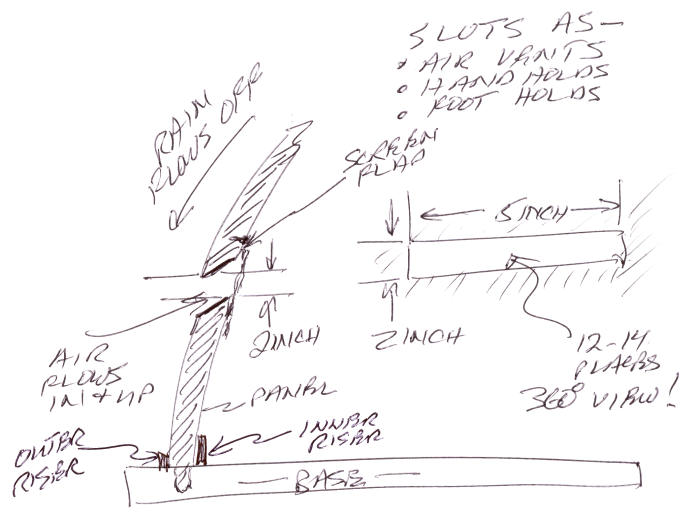 SLOTS AS—
• AIR VENTS
• HAND HOLDS
• FOOT HOLDS
RAIN
FLOWS OFF
SCREEN
FLAP
5 INCH
2 INCH
2 INCH
AIR
FLOWS
IN + UP
12-14
PLACES
360° VIEW!
PANEL
OUTER
RISER
INNER
RISER
BASE